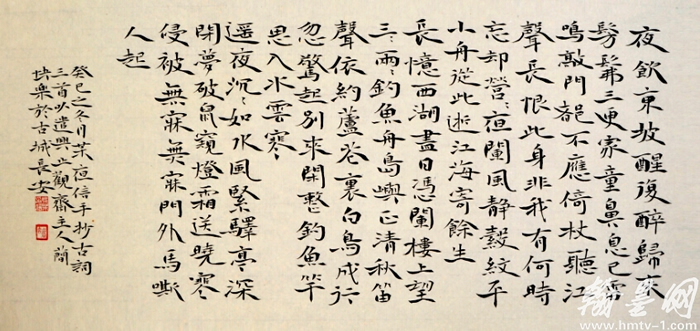 夜飲東坡醒復醉歸來
髣髴三更家童鼻息已雷
鳴敲門都不應倚杖聽江
聲長恨此身非我有何時
忘却營〻夜闌風静縠紋平
小舟從此逝江海寄餘生
長憶西湖盡日憑闌樓上望
三〻兩〻釣魚舟島嶼正清秋笛
聲依約蘆花裏白鳥成行
忽驚起別來閑整釣魚竿
思入水雲寒
遥夜沉〻如水風緊驛亭深
閉夢破鼠窺燈霜送曉寒
侵被無寐無寐門外馬嘶
人起
癸巳之冬月某夜信手抄古詞
三首以遣興止觀齋主人蘭
塊樂於古城長安
翰墨网
www.hmtv-1.com